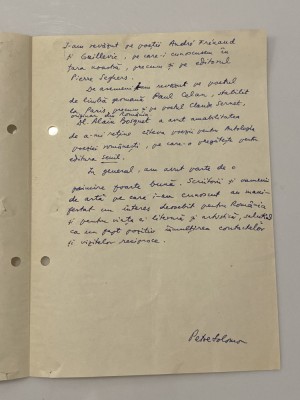 I-am revăzut pe poeții André Frénaud
și Guillevic, pe care-i cunoscusem în
țara noastră, precum și pe editorul
Pierre Seghers.
De asemeni l-am revăzut pe poetul
de limbă germană Paul Celan, stabilit
la Paris, precum și pe poetul Claude Sernet,
originar din România.
Dl Alain Bosquet a avut amabilitatea
de a-mi reține câteva poezii pentru Antologia
poeziei românești, pe care o pregătește pentru
editura Seuil.
În general, am avut parte de o
primire foarte bună. Scriitorii și oamenii
de artă pe care i-am cunoscut au mani-
festat un interes deosebit pentru România
și pentru viața ei literară și artistică, salutând
ca un fapt pozitiv înmulțirea contactelor
și vizitelor reciproce.
Petre Solomon